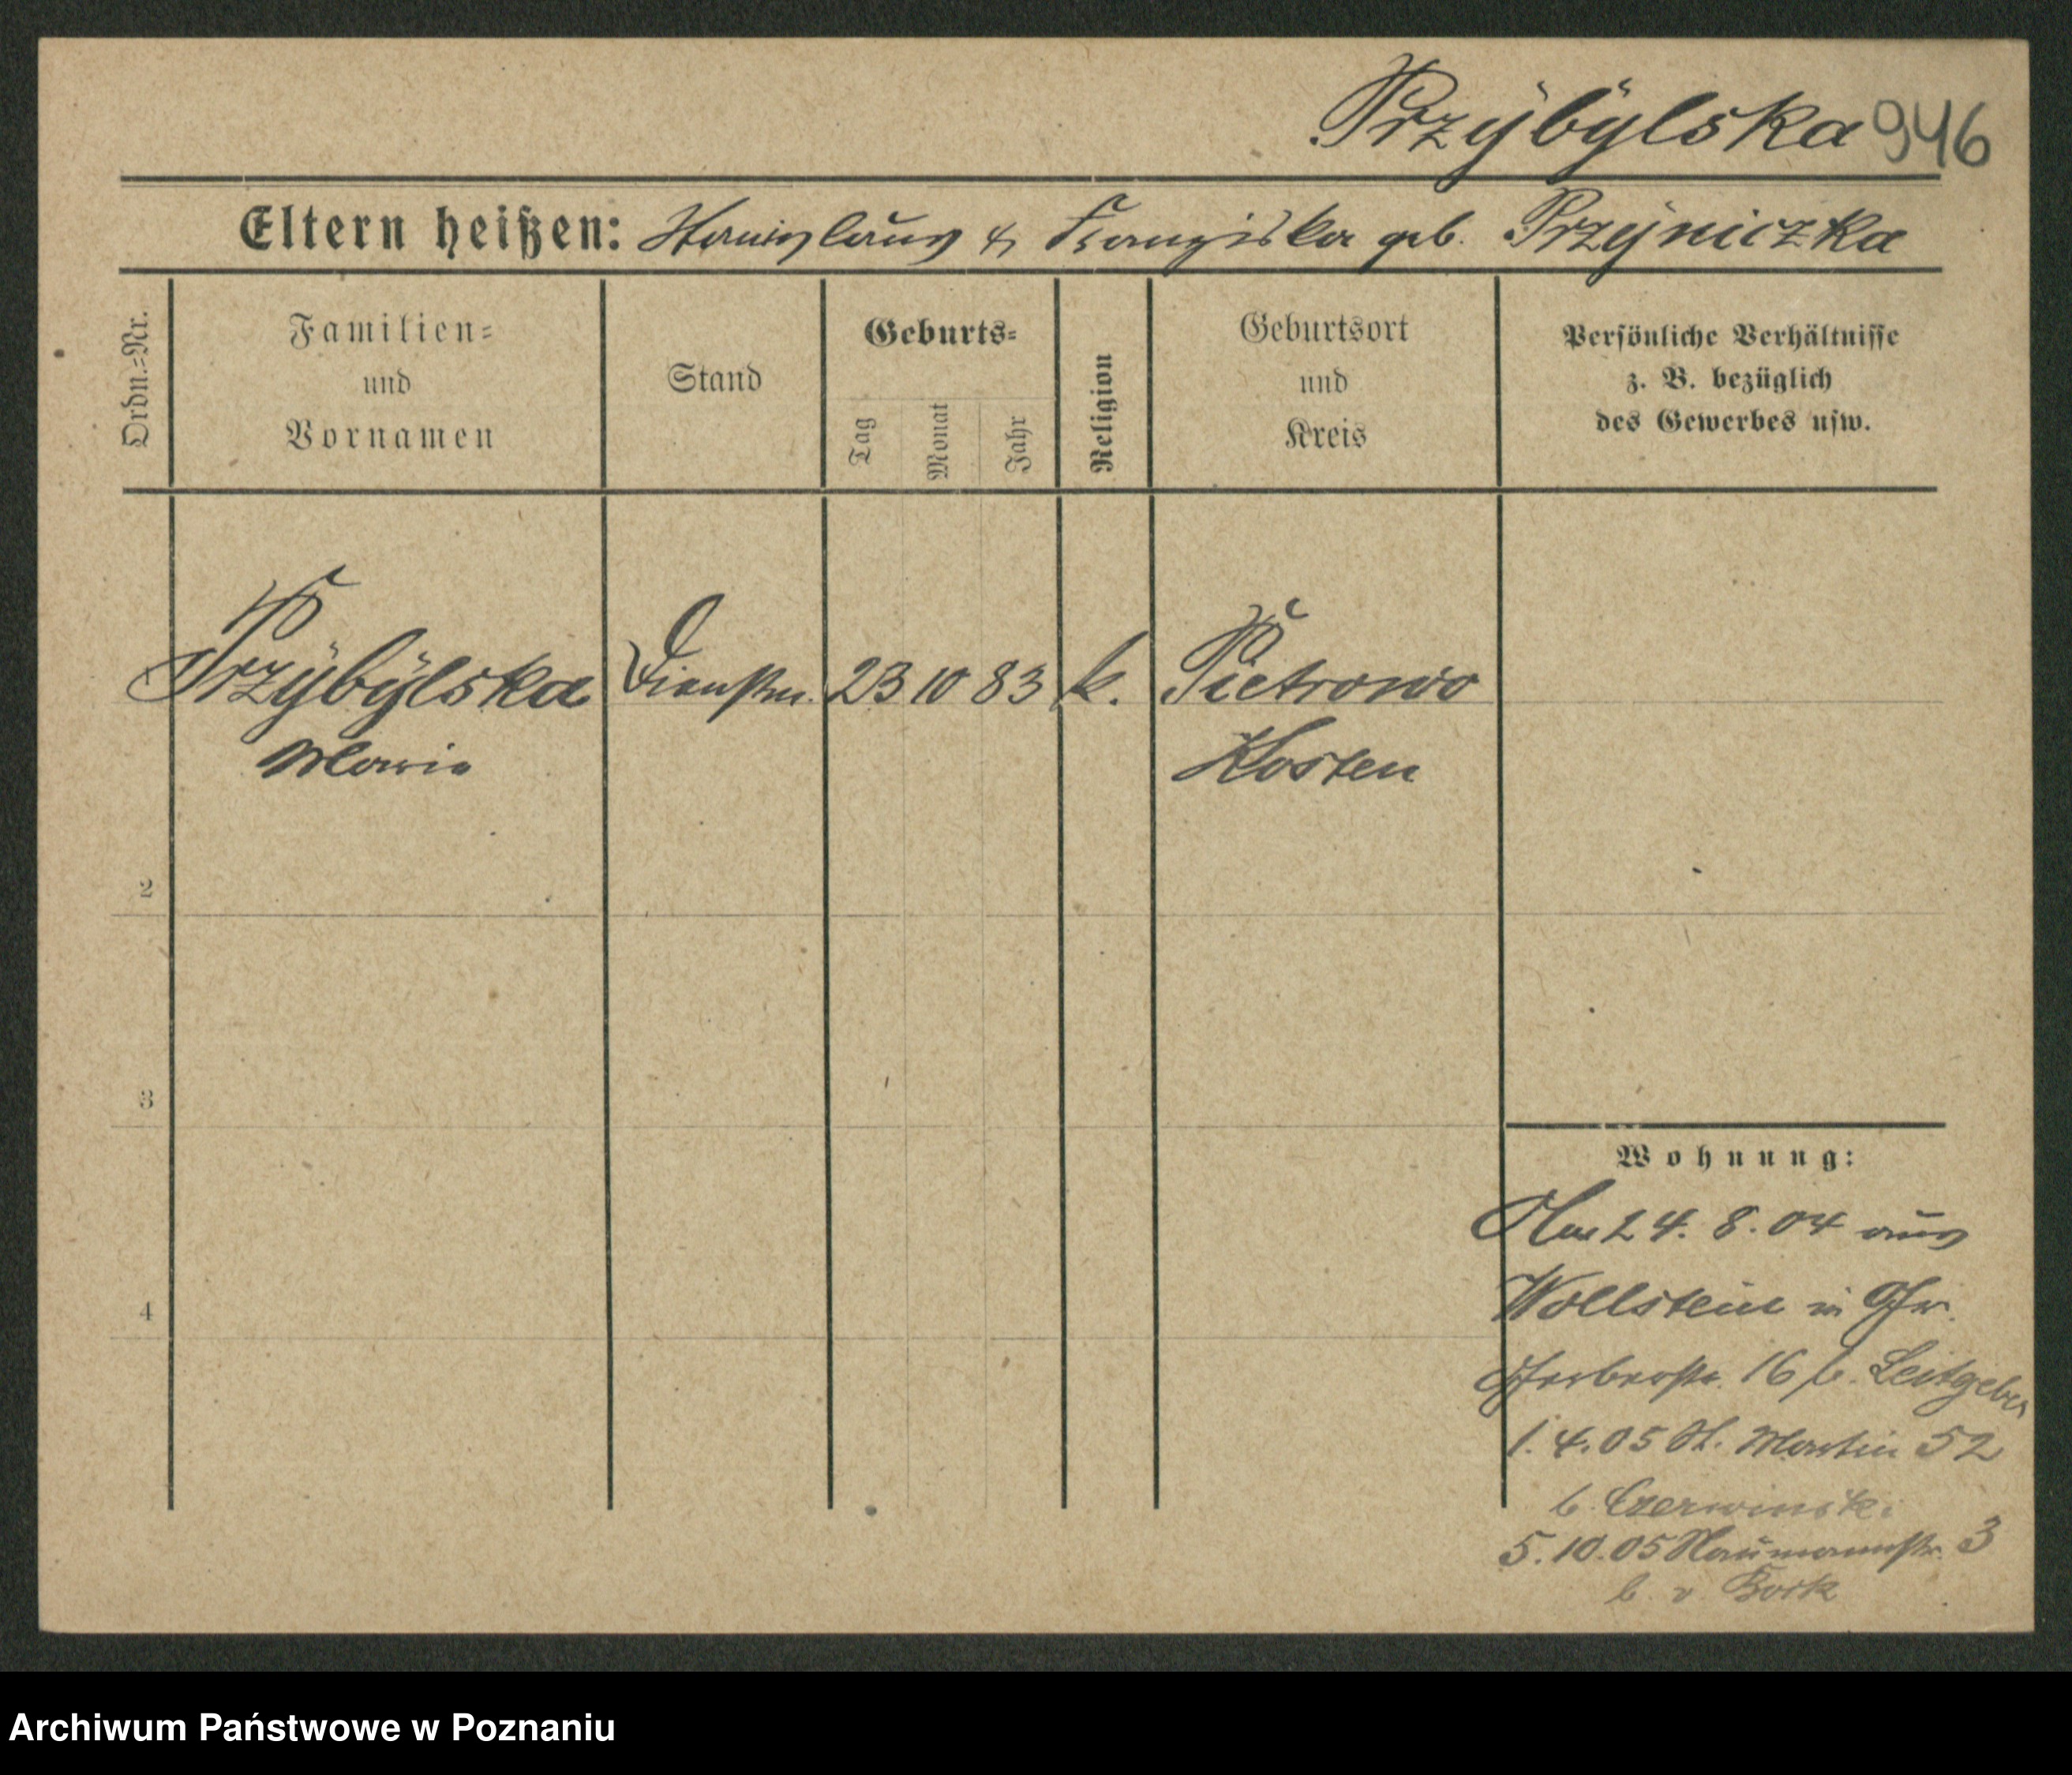 Przybylska 946
Eltern heißen: Stanislaus & Franziska geb. Przyniczka
Ordn.=Nr.
Familien=
und
Vornamen
Stand
Geburts=
Tag
Monat
Jahr
Religion
Geburtsort
und
Kreis
Persönliche Verhältnisse
z. B. bezüglich
des Gewerbes usw.
Przybylska Dienstm. 23 10 83 k. Pietrowo
Maria Kosten
2
3
4
Wohnung:
24. 8. 04 aus
Wollstein in
Gerberstr. 16 b. Leitgeber
1. 4. 05 St. Martin 52
b. Czerwinski
5. 10. 05 Naumannstr. 3
b. v.
Archiwum Państwowe w Poznaniu